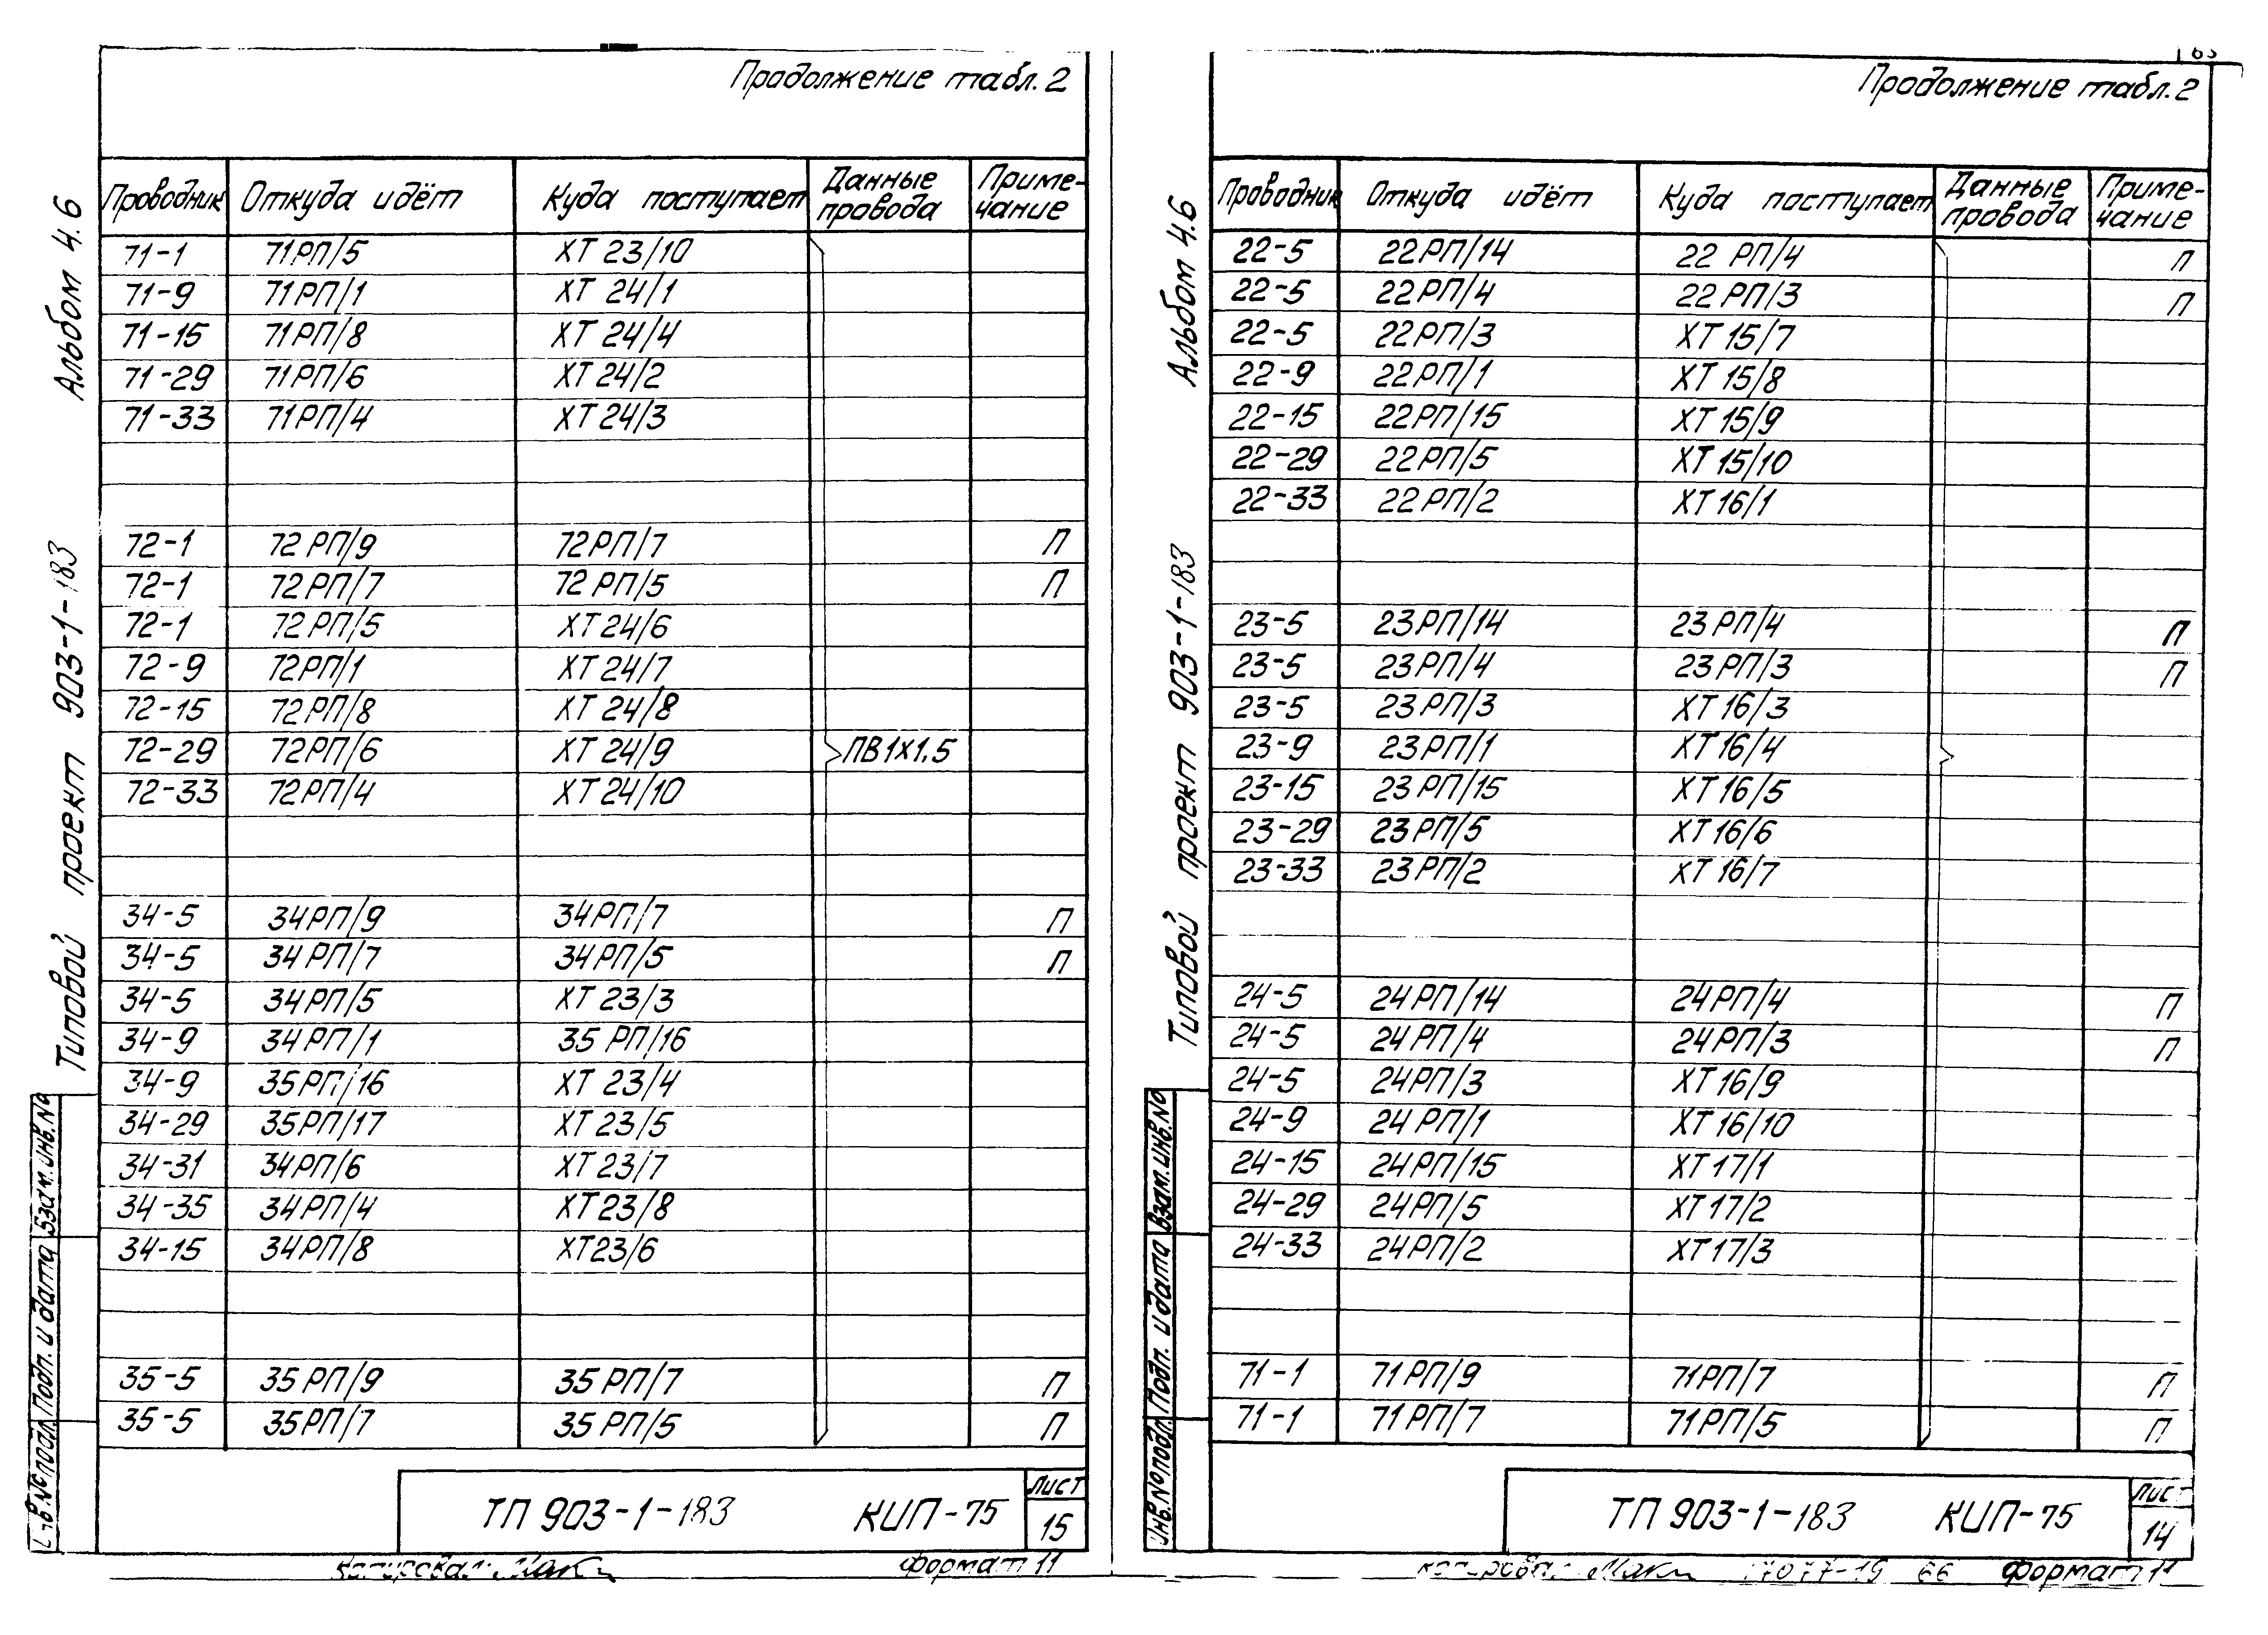 Продолжение табл. 2
Проводник Откуда идёт Куда поступает Данные провода Приме-чание
71-1 71РП/5 ХТ 23/10
71-9 71РП/1 ХТ 24/1
71-15 71РП/8 ХТ 24/4
71-29 71РП/6 ХТ 24/2
71-33 71РП/4 ХТ 24/3
72-1 72РП/9 72РП/7 П
72-1 72РП/7 72РП/5 П
72-1 72РП/5 ХТ 24/6
72-9 72РП/1 ХТ 24/7
72-15 72РП/8 ХТ 24/8
72-29 72РП/6 ХТ 24/9 ПВ1х1.5
72-33 72РП/4 ХТ 24/10
34-5 34РП/9 34РП/7 П
34-5 34РП/7 34РП/5 П
34-5 34РП/5 ХТ 23/3
34-9 34РП/1 35РП/16
34-9 35РП/16 ХТ 23/4
34-29 35РП/17 ХТ 23/5
34-31 34РП/6 ХТ 23/7
34-35 34РП/4 ХТ 23/8
34-15 34РП/8 ХТ 23/6
35-5 35РП/9 35РП/7 П
35-5 35РП/7 35РП/5 П
Альбом 4.6
Типовой проект 903-1-183
Взам. инв. №
Подп. и дата
Инв. № подл.
ТП 903-1-183 КИП-75
Лист
15
Копировал:
Формат 11
Продолжение табл. 2
Проводник Откуда идёт Куда поступает Данные провода Приме-чание
22-5 22РП/14 22РП/4 П
22-5 22РП/4 22РП/3 П
22-5 22РП/3 ХТ 15/7
22-9 22РП/1 ХТ 15/8
22-15 22РП/15 ХТ 15/9
22-29 22РП/5 ХТ 15/10
22-33 22РП/2 ХТ 16/1
23-5 23РП/14 23РП/4 П
23-5 23РП/4 23РП/3 П
23-5 23РП/3 ХТ 16/3
23-9 23РП/1 ХТ 16/4
23-15 23РП/15 ХТ 16/5
23-29 23РП/5 ХТ 16/6
23-33 23РП/2 ХТ 16/7
24-5 24РП/14 24РП/4 П
24-5 24РП/4 24РП/3 П
24-5 24РП/3 ХТ 16/9
24-9 24РП/1 ХТ 16/10
24-15 24РП/15 ХТ 17/1
24-29 24РП/5 ХТ 17/2
24-33 24РП/2 ХТ 17/3
71-1 71РП/9 71РП/7 П
71-1 71РП/7 71РП/5 П
Альбом 4.6
Типовой проект 903-1-183
Взам. инв. №
Подп. и дата
Инв. № подл.
ТП 903-1-183 КИП-75
Лист
14
Копировал:
17077-19 66
Формат 11